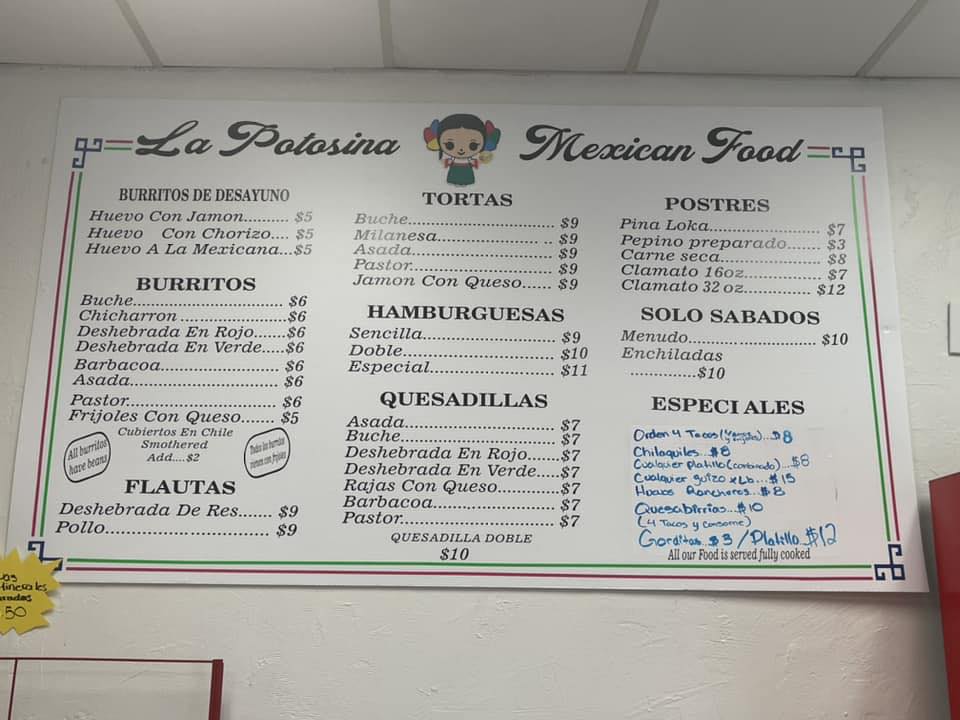 La Potosina Mexican Food
BURRITOS DE DESAYUNO
Huevo Con Jamon.......... $5
Huevo Con Chorizo.... $5
Huevo A La Mexicana...$5
BURRITOS
Buche............................ $6
Chicharron ....................$6
Deshebrada En Rojo......$6
Deshebrada En Verde.....$6
Barbacoa....................... $6
Asada............................. $6
Pastor............................ $6
Frijoles Con Queso....... $5
Cubiertos En Chile
Smothered
Add....$2
All burritos
have beans
Todos los burritos
vienen con frijoles
FLAUTAS
Deshebrada De Res....... $9
Pollo............................. $9
TORTAS
Buche............................ $9
Milanesa................... .. $9
Asada............................ $9
Pastor............................ $9
Jamon Con Queso...... $9
HAMBURGUESAS
Sencilla......................... $9
Doble............................. $10
Especial....................... $11
QUESADILLAS
Asada............................$7
Buche............................$7
Deshebrada En Rojo......$7
Deshebrada En Verde....$7
Rajas Con Queso...........$7
Barbacoa.......................$7
Pastor............................$7
QUESADILLA DOBLE
$10
POSTRES
Pina Loka...................... $7
Pepino preparado....... $3
Carne seca.................... $8
Clamato 16oz............... $7
Clamato 32 oz............ $12
SOLO SABADOS
Menudo.......................... $10
Enchiladas
.............$10
ESPECIALES
Orden 4 Tacos ... $8
Chilaquiles...$8
Cualquier Platillo (combinado)...$8
Cualquier guizo x Lb...$15
Huevos Rancheros...$8
Quesabirrias...$10
(4 Tacos y consome)
Gorditas..$3 / Platillo..$12
All our Food is served fully cooked
50